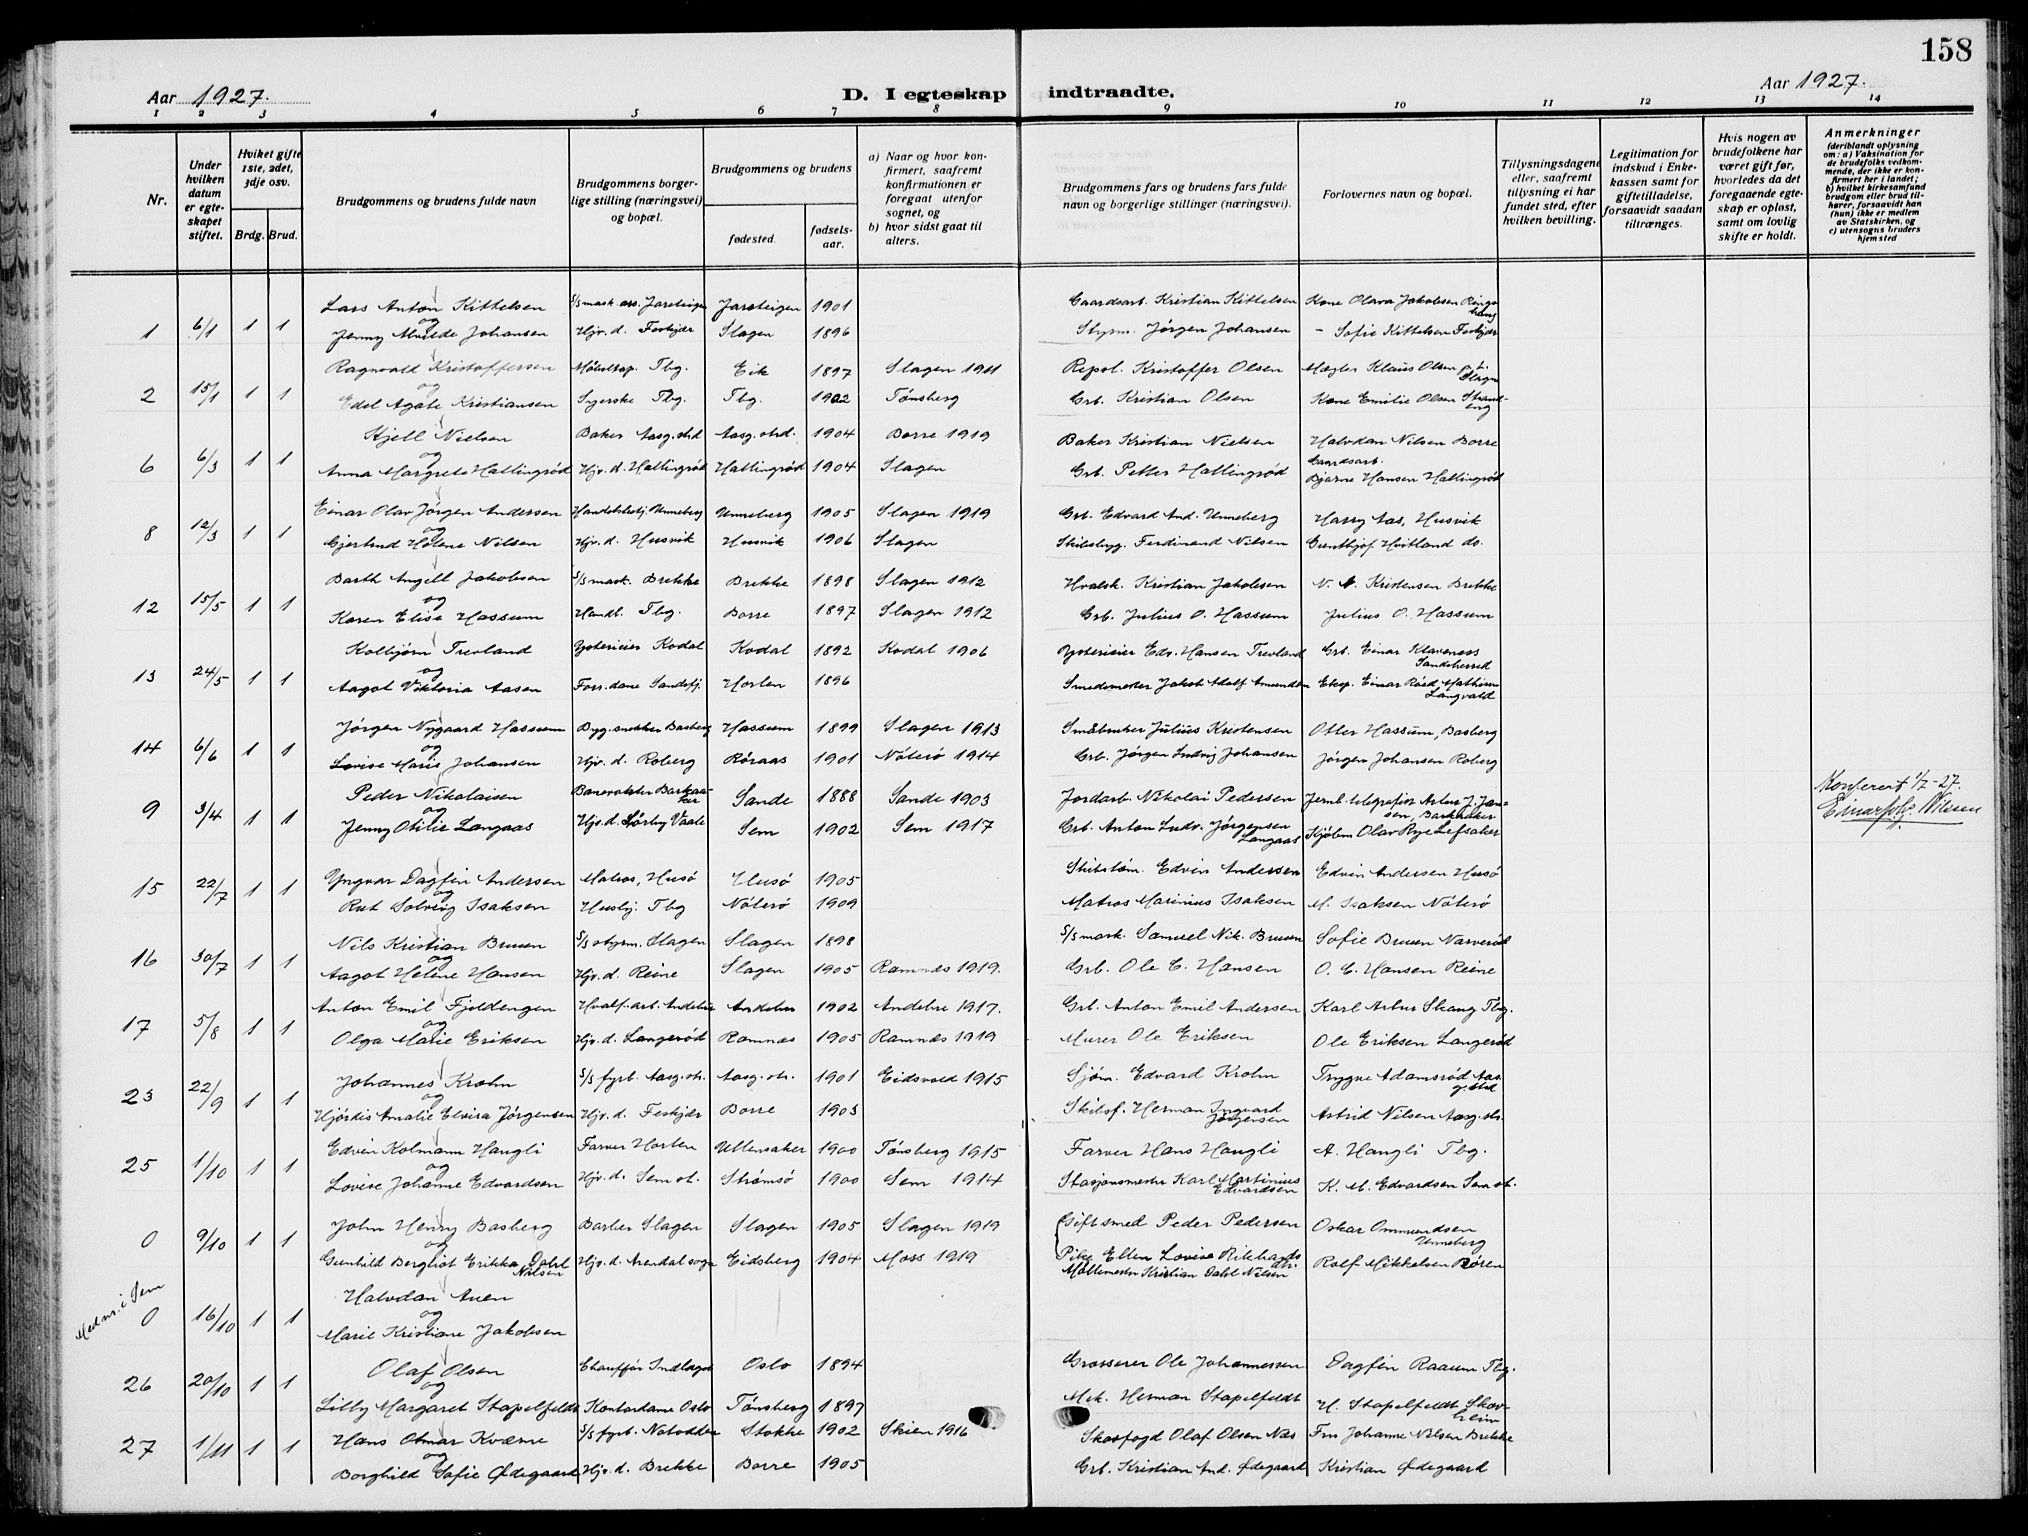 158
Aar 1927.
D. I egteskap indtraadte.
Aar 1927.
1 2 3 4 5 6 7 8 9 10 11 12 13 14
Nr.
Under hvilken datum er egteskapet stiftet.
Hviket gifte 1ste, 2det, 3dje osv.
Brdg. Brud.
Brudgommens og brudens fulde navn
Brudgommens borgerlige stilling (næringsvei) og bopæl.
Brudgommens og brudens
fødested.
fødselsaar.
a) Naar og hvor konfirmert, saafremt konfirmationen er foregaat utenfor sognet, og
b) hvor sidst gaat til alters.
Brudgommens fars og brudens fars fulde navn og borgerlige stillinger (næringsvei).
Forlovernes navn og bopæl.
Tillysningsdagene eller, saafremt tillysning ei har fundet sted, efter hvilken bevilling.
Legitimation for indskud i Enkekassen samt for giftetilladelse, forsaavidt saadan tiltrænges.
Hvis nogen av brudefolkene har været gift før, hvorledes da det foregaaende egteskap er opløst, samt om lovlig skifte er holdt.
Anmerkninger (deriblandt oplysning om: a) Vaksination for de brudefolks vedkommende, der ikke er konfirmert her i landet; b) hvilket kirkesamfund brudgom eller brud tilhører, forsaavidt han (hun) ikke er medlem av Statskirken, og c) utensogns bruders hjemsted
Lars Anton Kittelsen S/S mask. ass. Jarsteigen Jarsteigen 1901 Gaardsarb. Kristian Kittelsen Kone Olava Jakobsen Ringshaug
1 6/1 1 1 og
Jenny Alvilde Johansen Hjv. d. Feskjær Slagen 1896 Styrm. Jørgen Johansen - Sofie Kittelsen Feskjær
Ragnvald Kristoffersen Møbeltap. Tbg. Eik 1897 Slagen 1911 Repsl. Kristoffer Olsen Mægler Klaus Olsen Slagen
2 15/1 1 1 og
Edel Agate Kristiansen Syerske Tbg. Tbg. 1902 Tønsberg Grb. Kristian Olsen Kone Emilie Olsen Strandeng
Kjell Nielsen Baker Aasg. strd Aasg. strd. 1904 Borre 1919 Baker Kristian Nielsen Halvdan Nilsen Borre
6 6/3 1 1 og
Anna Margrete Hattingrød Hjv. d. Hattingrød Hattingrød 1904 Slagen Grb. Petter Hattingrød Gaardsarb. Bjarne Hansen Hattingrød
Einar Olav Jørgen Andersen Handelsbetj. Unneberg Unneberg 1905 Slagen 1919 Grb. Edvard And. Unneberg Harry Aas, Husvik
8 12/3 1 1 og
Gjertrud Helene Nilsen Hjv. d. Husvik Husvik 1906 Slagen Skibsbyg. Ferdinand Nilsen
Barth Angell Jakobsen S/S mask. Brekke Brekke 1898 Slagen 1912 Hvalsk. Kristian Jakobsen Kristensen Brekke
12 15/5 1 1 og
Karen Elise Hassum Handl. Tbg. Borre 1897 Slagen 1912 Grb. Julius O. Hassum Julius O. Hassum
Kolbjørn Trevland Ysterieier Kodal Kodal 1892 Kodal 1906 Ysterieier Edv. Hansen Trevland Grb. Einar Klavenæs Sandeherred
13 24/5 1 1 og
Aagot Viktoria Aasen Forr. dame Sandefj. Horten 1896 Smedemester Jakob Adolf Amundsen Eksp. Einar Røed Mathisen Langvald
Jørgen Nygaard Hassum Byg. snekker Basberg Hassum 1899 Slagen 1913 Småbruker Julius Kristensen Otter Hassum, Basberg
14 6/6 1 1 og
Lovise Marie Johansen Hjv. d. Roberg Røraas 1901 Nøterø 1914 Grb. Jørgen Ludvig Johansen Jørgen Johansen Roberg
Peder Nikolaisen Banevokter Barkaaker Sande 1888 Sande 1903 Jordarb. Nikolai Pedersen Jernb. telegrafist Artur J. Jansen, Barkaaker Konferert 1/7-27.
9 3/4 1 1 og
Jenny Otilie Langaas Hjv. d. Sørby Vaale Sem 1902 Sem 1917 Grb. Anton Ludv. Jørgensen Langaas Kjøbm Olav Rye Lefsaker Nilssen
Yngvar Dagfin Andersen Matros, Husø Husø 1905 Skibstøm. Edvin Andersen Edvin Andersen Husø
15 22/7 1 1 og
Rut Solveig Isaksen Husbj. Tbg Nøterø 1909 Matros Marinius Isaksen M. Isaksen Nøterø
Nils Kristian Bruun S/S styrm. Slagen Slagen 1898 S/S mask. Samuel Nik. Bruun Sofie Bruun Narverød
16 30/7 1 1 og
Aagot Helene Hansen Hjv. d. Reine Slagen 1905 Ramnes 1919. Grb. Ole C. Hansen O. C. Hansen Reine
Anton Emil Fjeldengen Hvalf. arb. Andebu Andebu 1902 Andebu 1917. Grb. Anton Emil Andersen Karl Artur Skaug Tbg.
17 5/8 1 1 og
Olga Marie Eriksen Hjv. d. Langerød Ramnes 1905 Ramnes 1919 Murer Ole Eriksen Ole Eriksen Langerød
Johannes Krohn S/S fyrb. Aasg. str. Aasg. str. 1901 Eidsvold 1915 Sjøm. Edvard Krohn Trygve Adamsrød Aasg. std
23 22/9 1 1 og
Hjørdis Amalie Elvira Jørgensen Hjv. d. Feskjær Borre 1903 Skibsf. Herman Ingvard Jørgensen Astrid Nilsen Aasg. str.
Edvin Kolmann Haugli Farver Horten Ullensaker 1900 Tønsberg 1915 Farver Hans Haugli A. Haugli Tbg.
25 1/10 1 1 og
Lovise Johanne Edvardsen Hjv. d. Sem st. Strømsø 1900 Sem 1914 Stasjonsmester Karl Martinius Edvardsen K. M. Edvardsen Sem st.
John Henry Basberg Barber Slagen Slagen 1905 Slagen 1919 Gift smed Peder Pedersen Oskar Ommundsen Unneberg
0 9/10 1 1 og Pike Ellen Lovise Rikhardsdtr.
Gunhild Bergliot Erikka Dahl Nilsen Hjv. d. Arendal sogn Eidsberg 1904 Moss 1919 Møllemester Kristian Dahl Nilsen Rolf Mikkelsen Røren
Med nr. i Sem
Halvdan Auen
0 16/10 1 1 og
Marie Kristiane Jakobsen
Olaf Olsen Chauffør Indlaget Oslo 1894 Grosserer Ole Johannessen Dagfin Raaum Tbg.
26 20/10 1 1 og
Lilly Margaret Stapelfeldt Kontordame Oslo Tønsberg 1897 Mek. Herman Stapelfeldt H. Stapelfeldt Skovheim
Hans Otmar Kværne S/S fyrb. Notodden Stokke 1902 Skien 1916 Skogfogd Olaf Olsen Næs Fru Johanne Nilsen Brekke
27 1/11 1 1 og
Borghild Sofie Ødegaard Hjv. d. Brekke Borre 1905 Grb. Kristian And. Ødegaard Kristian Ødegaard